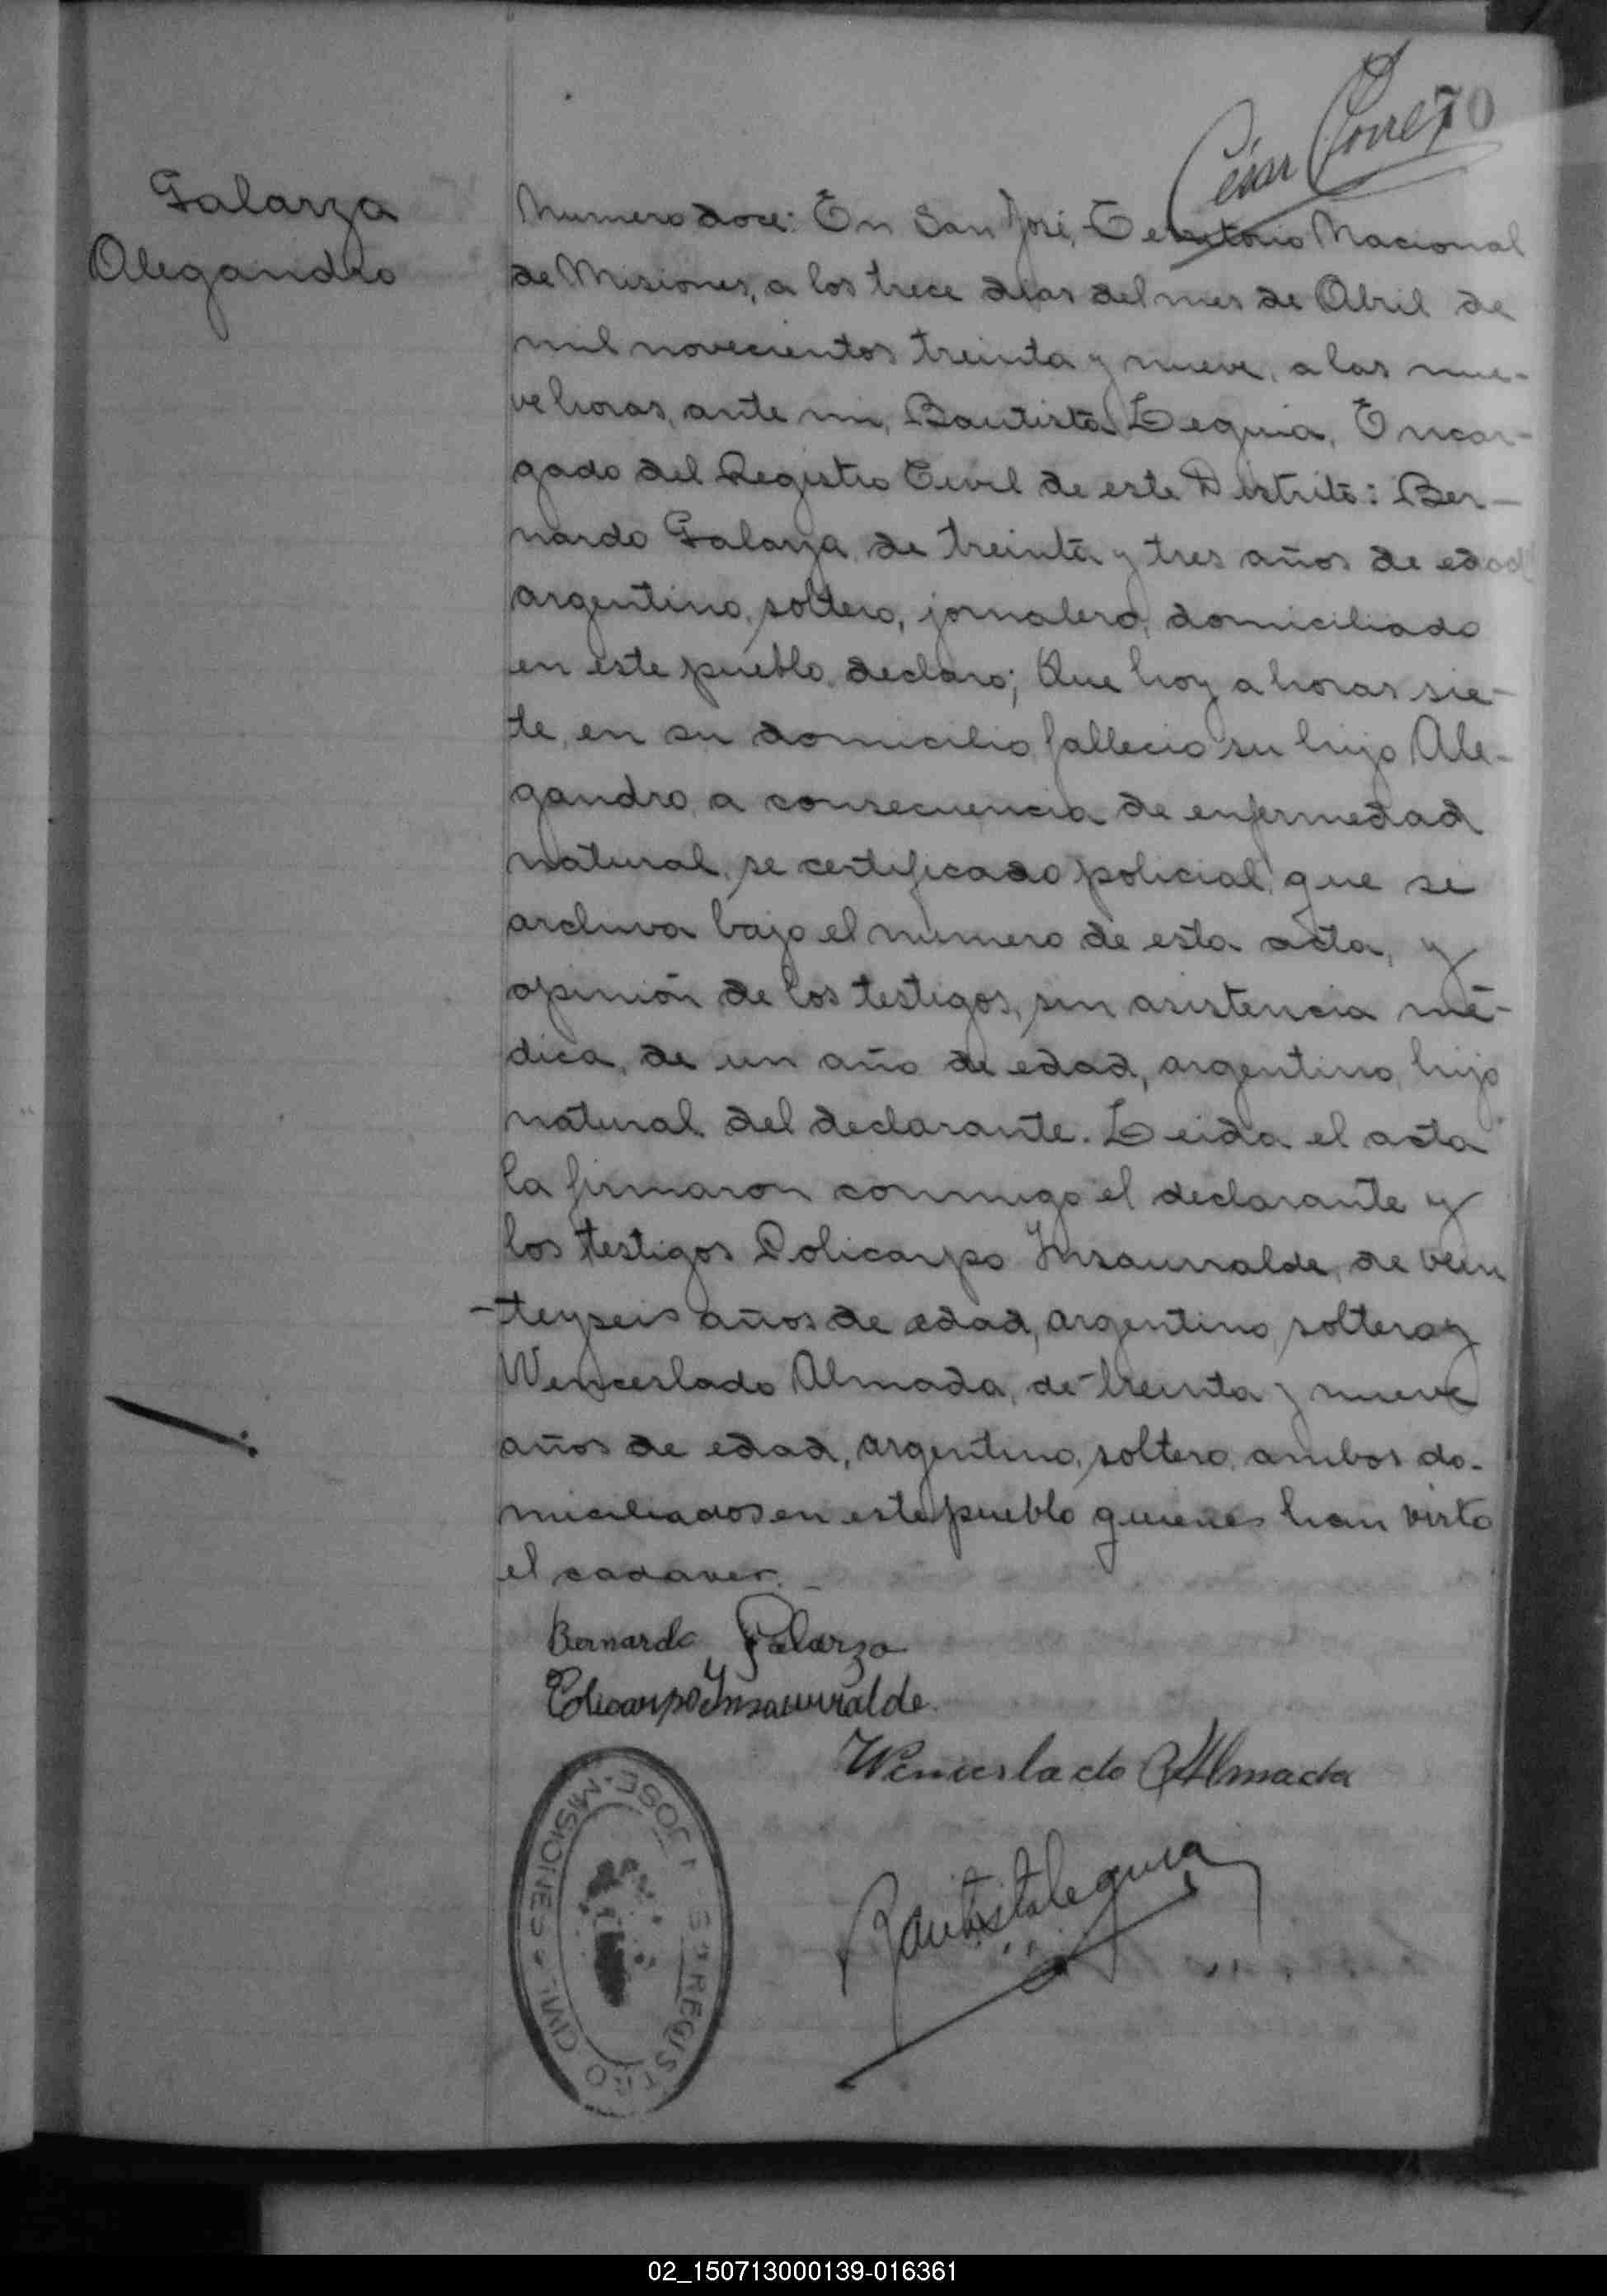 70
César
Galarza
Alegandro
Numero doce: En San José, Territorio Nacional
de Misiones, a los trece dias del mes de Abril de
mil novecientos treinta y nueve, a las nue-
ve horas, ante mi, Bautista Leguia, Encar-
gado del Registro Civil de este Distrito: Ber-
nardo Galarza, de treinta y tres años de edad
argentino, soltero, jornalero, domiciliado
en este pueblo, declaro; Que hoy a horas sie-
te, en su domicilio, fallecio su hijo Ale-
gandro, a consecuencia de enfermedad
natural, se certificado policial, que se
archiva bajo el numero de esta acta, y
opinión de los testigos, sin asistencia mé-
dica, de un año de edad, argentino, hijo
natural del declarante. Leida el acta
la firmaron conmigo el declarante y
los testigos Policarpo Insaurralde, de vein
-teyseis años de edad, argentino, soltero y
Wenceslado Almada, de treinta y nueve
años de edad, argentino, soltero, ambos do-
miciliados en este pueblo quienes han visto
el cadaver.-
Bernardo Galarza
Policarpo Insaurralde.
Wenceslado Almada
Bautista Leguia
REGISTRO CIVIL MISIONES JOSE
02_150713000139-016361